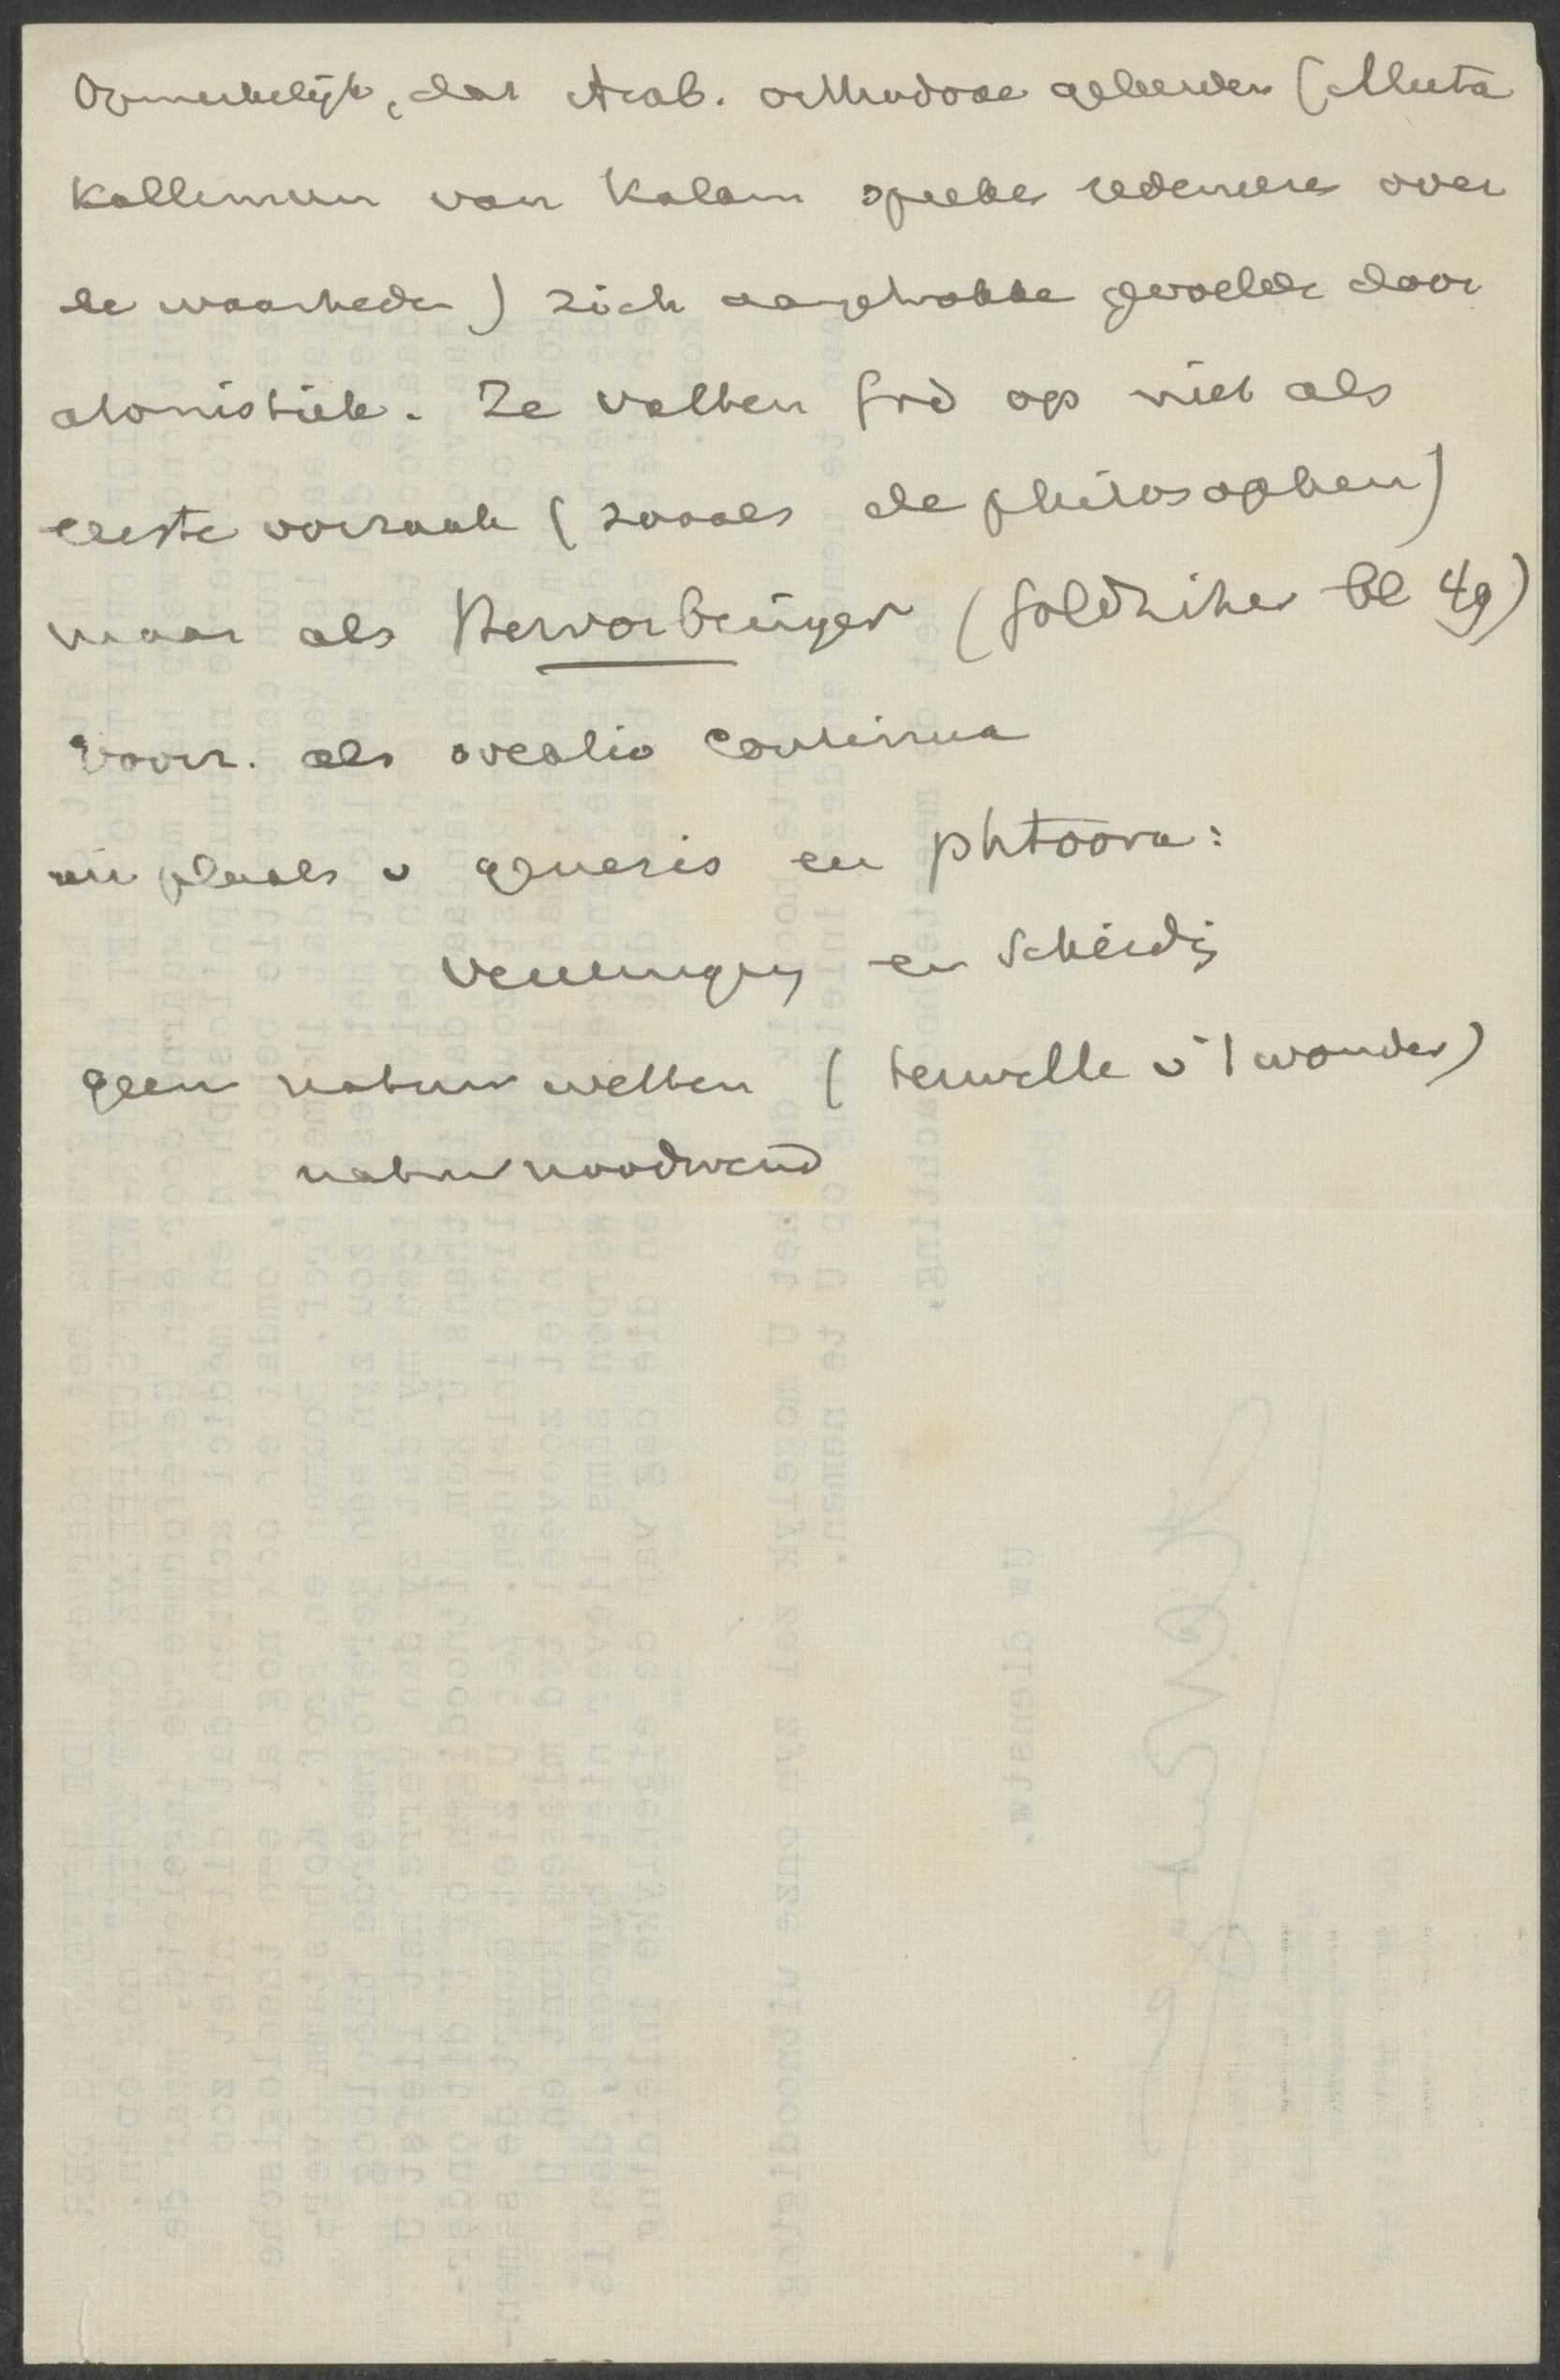 Opmerkelijk, dat Arab. orthodoxe geleerden (Muta
kallimun van Kalam spreken redeneeren over
de waarheden) zich aangetrokken gevoelden door
atomistiek. Ze vatten God op niet als
eerste oorzaak (zooals de philosophen)
maar als Hervorbringer (Goldziher bl 49)
voorz. als creatio continua
in plaats v genesis en phtoora:
vereeniging en scheidg
geen natuurwetten (terwille v 't wonder)
natuurnoodwend